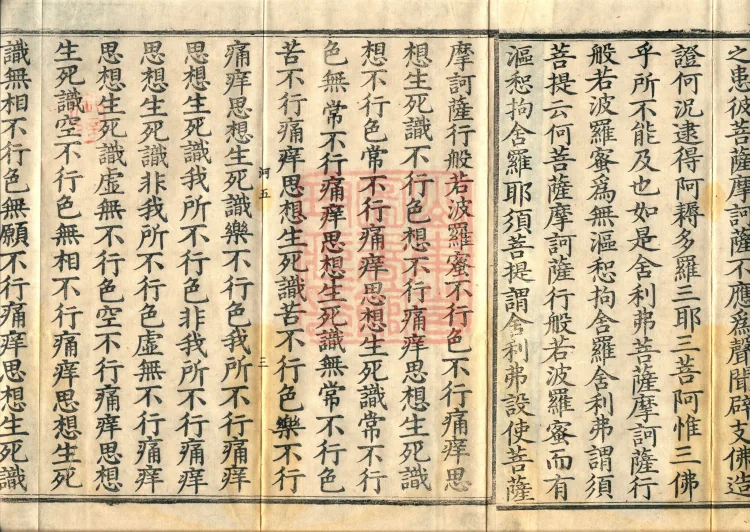 之患彼菩薩摩訶薩不應爲聲聞辟支佛造
證何況逮得阿耨多羅三耶三菩阿惟三佛
乎所不能及也如是舍利弗菩薩摩訶薩行
般若波羅蜜爲無漚惒拘舍羅舍利弗謂須
菩提云何菩薩摩訶薩行般若波羅蜜而有
漚惒拘舍羅耶須菩提謂舍利弗設使菩薩
摩訶薩行般若波羅蜜不行色不行痛痒思
想生死識不行色想不行痛痒思想生死識
想不行色常不行痛痒思想生死識常不行
色無常不行痛痒思想生死識無常不行色
苦不行痛痒思想生死識苦不行色樂不行
河五 三
痛痒思想生死識樂不行色我所不行痛痒
思想生死識我所不行色非我所不行痛痒
思想生死識非我所不行色虛無不行痛痒
思想生死識虛無不行色空不行痛痒思想
生死識空不行色無相不行痛痒思想生死
識無相不行色無願不行痛痒思想生死識